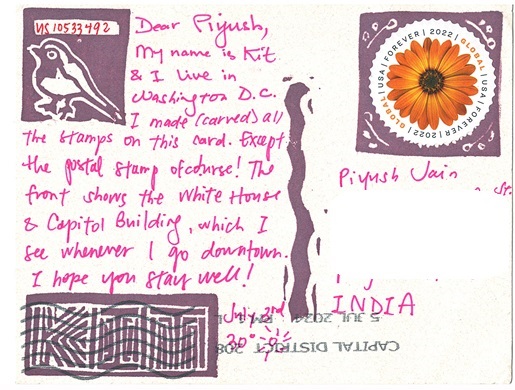 US 10533492
Dear Piyush,
My name is Kit
& I live in
Washington D.C.
I made (carved) all
the stamps on this card. Except
the postal stamp ofcourse! The
front shows the White House
& Capitol Building, which I
see whenever I go downtown.
I hope you stay well!
July 3rd
30°
GLOBAL | USA | FOREVER | 2022 | GLOBAL | USA | FOREVER | 2022 |
Piyush Jain
St.
INDIA
CAPITAL DISTRICT 208
5 JUL 2024 PM